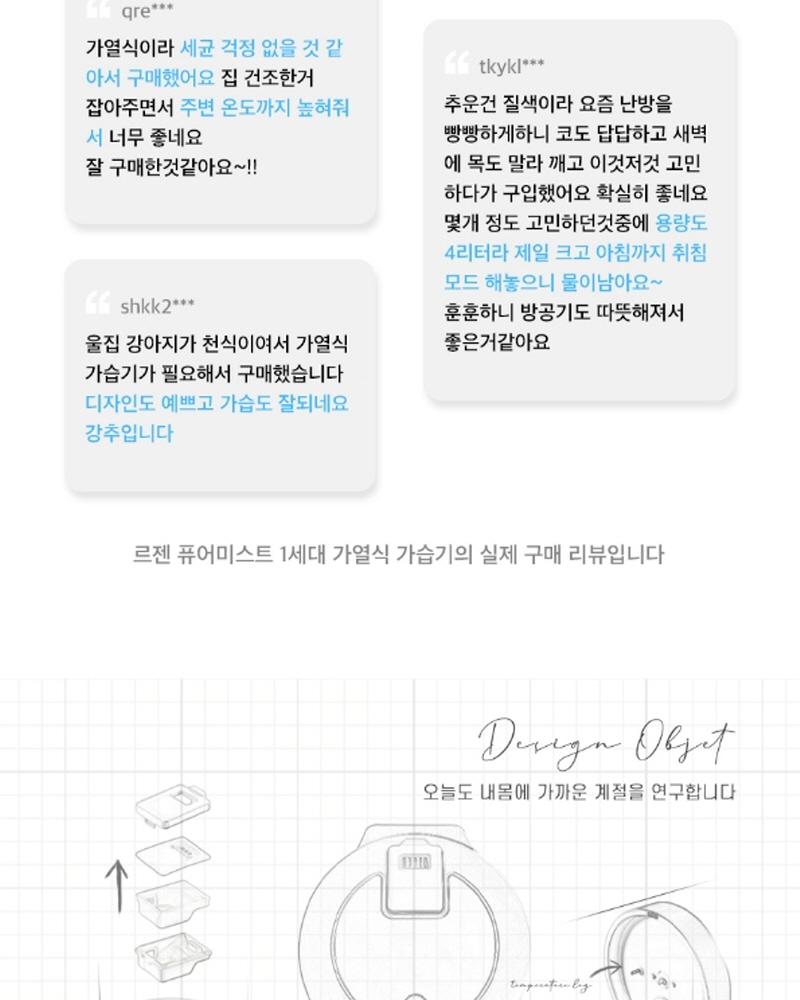 qre***
가열식이라 세균 걱정 없을 것 같
아서 구매했어요 집 건조한거
잡아주면서 주변 온도까지 높혀줘
서 너무 좋네요
잘 구매한것같아요~!!
shkk2***
울집 강아지가 천식이여서 가열식
가습기가 필요해서 구매했습니다
디자인도 예쁘고 가습도 잘되네요
강추입니다
tkykl***
추운건 질색이라 요즘 난방을
빵빵하게하니 코도 답답하고 새벽
에 목도 말라 깨고 이것저것 고민
하다가 구입했어요 확실히 좋네요
몇개 정도 고민하던것중에 용량도
4리터라 제일 크고 아침까지 취침
모드 해놓으니 물이남아요~
훈훈하니 방공기도 따뜻해져서
좋은거같아요
르젠 퓨어미스트 1세대 가열식 가습기의 실제 구매 리뷰입니다
Design Objet
오늘도 내몸에 가까운 계절을 연구합니다